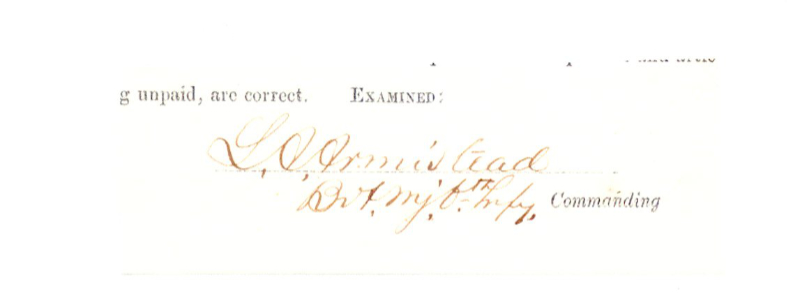 g unpaid, are correct. EXAMINED:
L. A. Armistead
Bvt. Mj. 6th Infy. Commanding